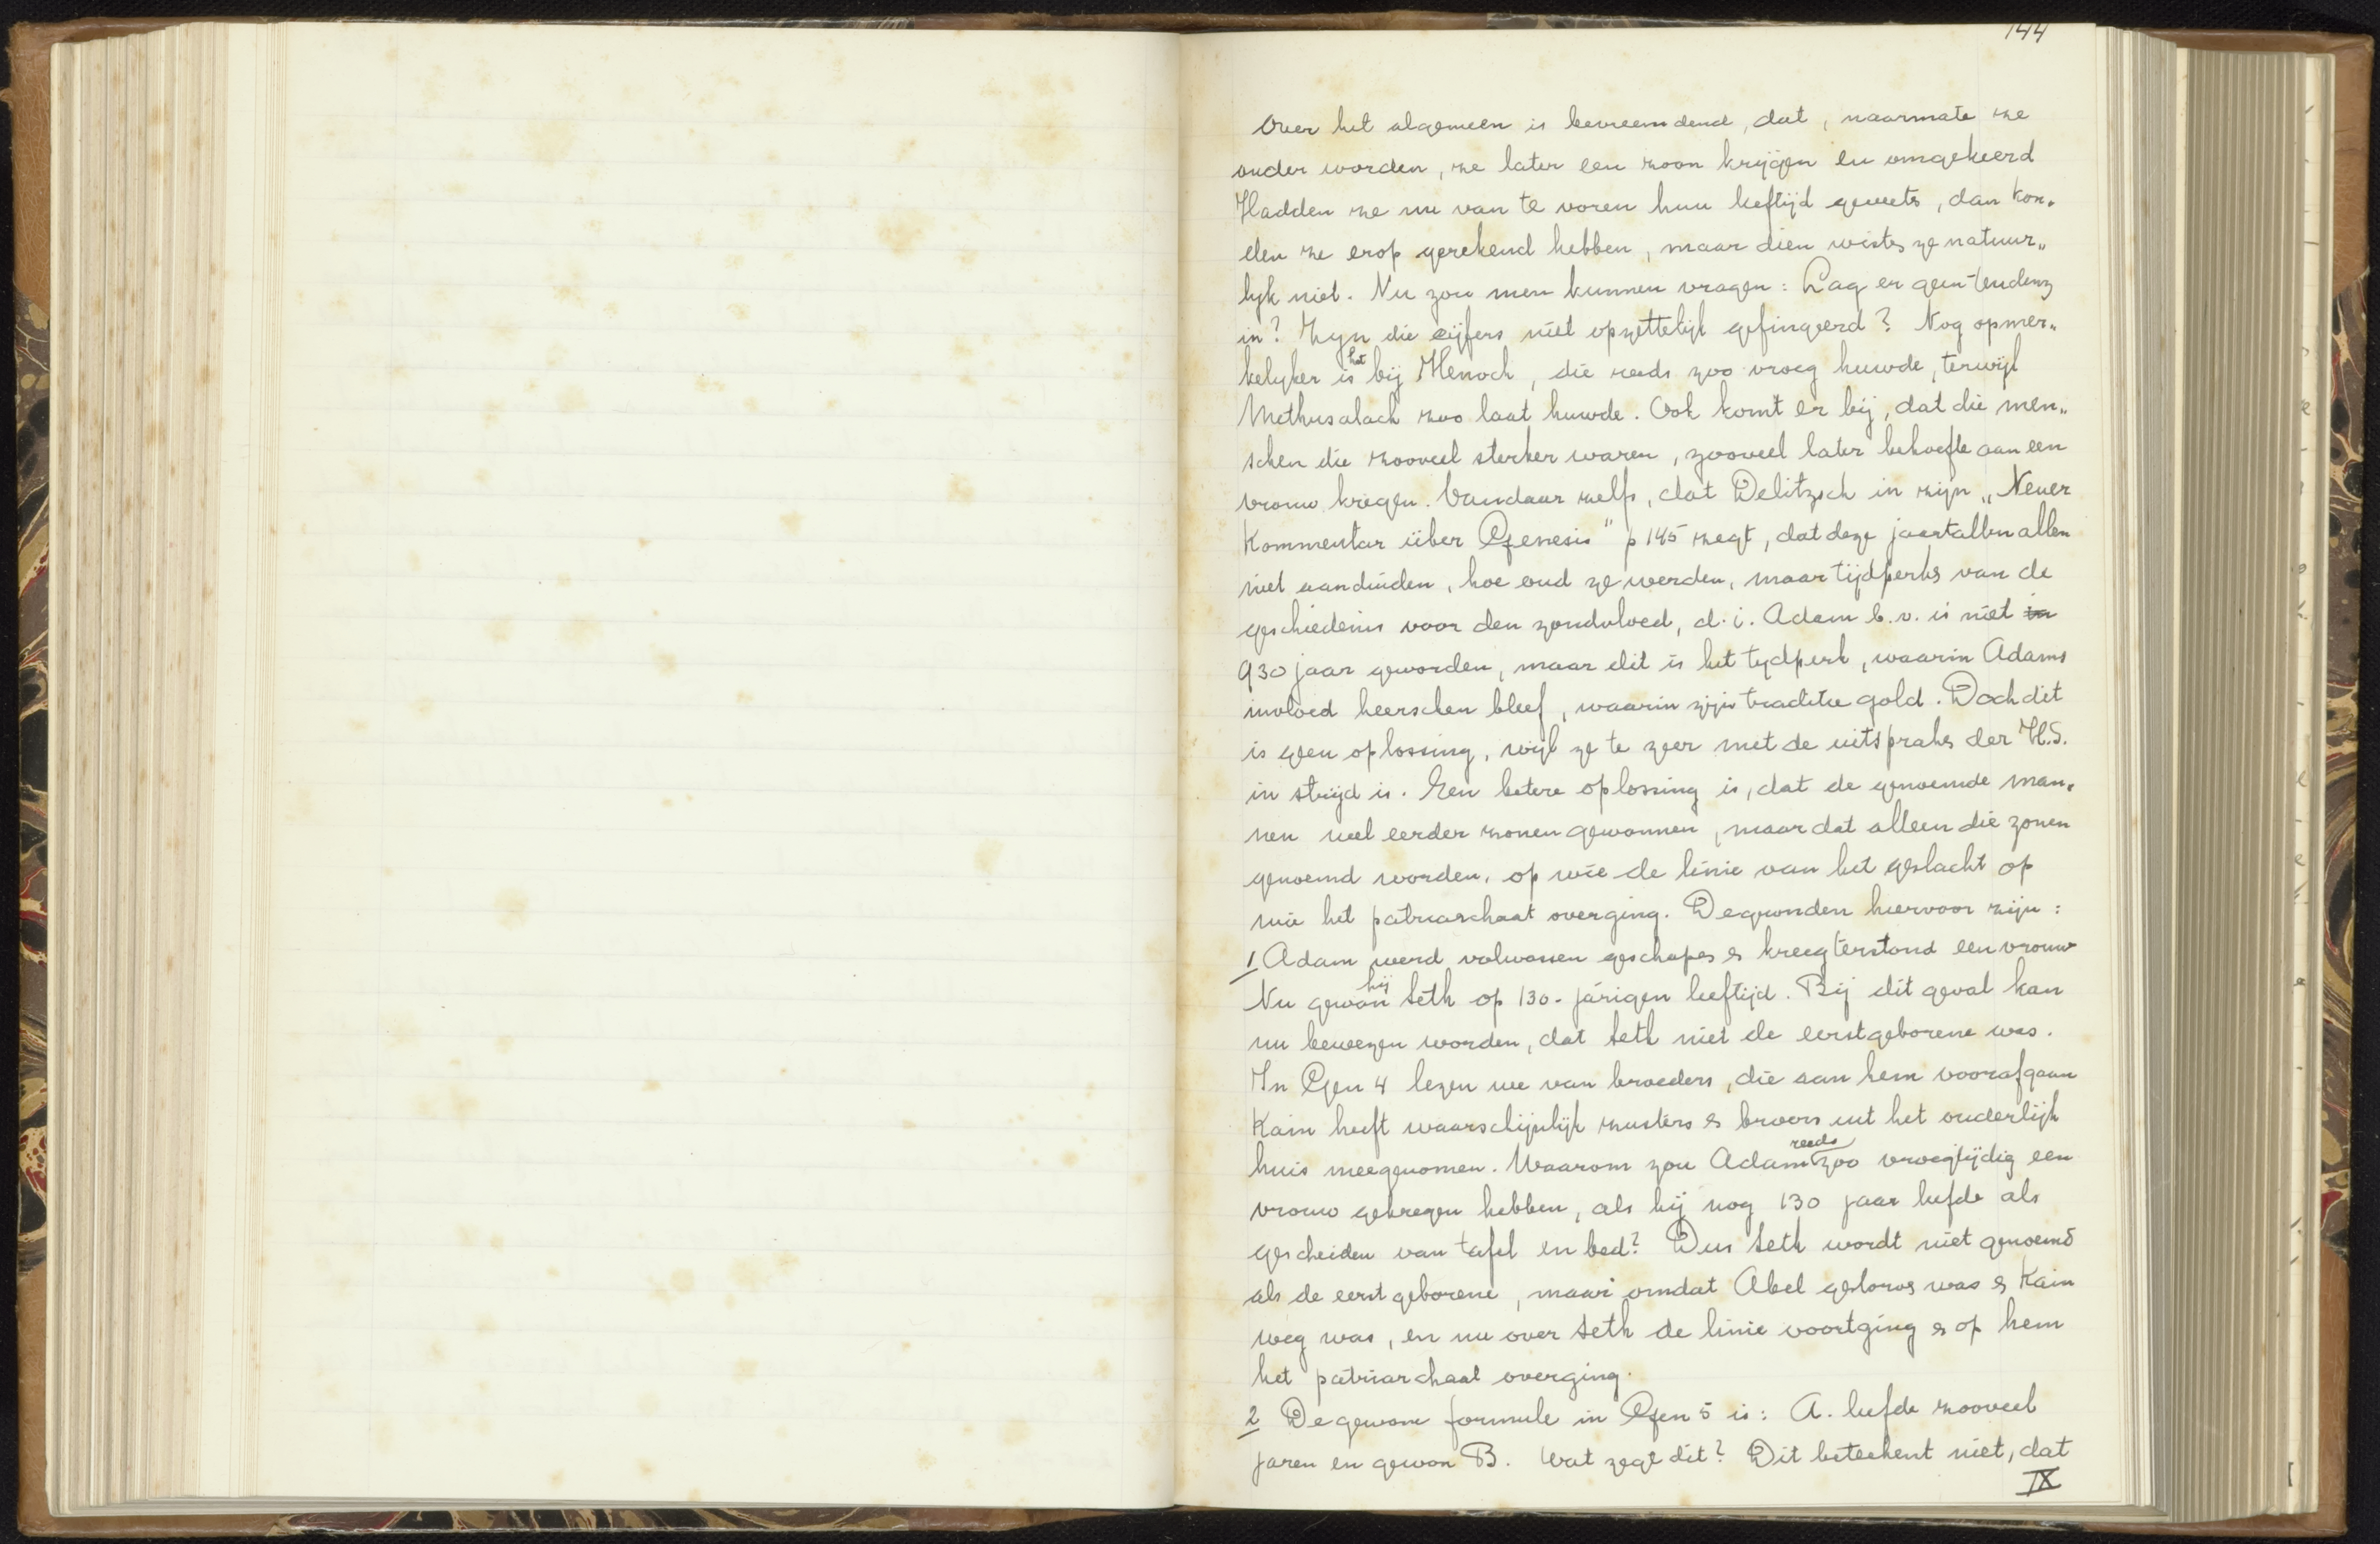 144
Over het algemeen is bevreemdend, dat, naarmate ze
ouder worden, ze later een zoon krijgen en omgekeerd
Hadden ze nu van te voren hun leeftijd geweten, dan kon„
den ze erop gerekend hebben, maar dien wisten ze natuur„
lyk niet. Nu zou men kunnen vragen: Lag er geen tendenz
in? Zyn die cijfers niet opzettelijk gefingeerd? Nog opmer„
kelyker is het bij Henoch, die reeds zoo vroeg huwde, terwijl
Methusalach zoo laat huwde. Ook komt er bij, dat die men„
schen die zooveel sterker waren, zooveel later behoefte aan een
vrouw kregen. Vandaar zelfs, dat Delitzsch in zijn „Neuer
Kommentar über Genesis" p 145 zegt, dat deze jaartallen allen
niet aanduiden, hoe oud ze werden, maar tijdperks van de
geschiedenis voor den zondvloed, d.i. Adam b.v. is niet in
930 jaar geworden, maar dit is het tydperk, waarin Adams
invloed heerschen bleef, waarin zijn traditie gold. Doch dit
is geen oplossing, wijl ze te zeer met de uitspraken der H.S.
in strijd is. Een betere oplossing is, dat de genoemde man„
nen veel eerder zonen gewonnen, maar dat alleen die zonen
genoemd worden, op wie de linie van het geslacht op
wie het patriarchaat overging. De gronden hiervoor zijn:
1 Adam werd volwassen geschapen en kreeg terstond een vrouw
Nu gewon hij Seth op 130-jarigen leeftijd. Bij dit geval kan
nu bewezen worden, dat Seth niet de eerstgeborene was.
In Gen 4 lezen we van broeders, die aan hem voorafgaan
Kain heeft waarschijnlijk zusters en broers uit het ouderlijk
huis meegenomen. Waarom zou Adam reeds zoo vroegtijdig een
vrouw gekregen hebben, als hij nog 130 jaar leefde als
gescheiden van tafel en bed? Dus Seth wordt niet genoemd
als de eerstgeborene, maar omdat Abel gestorven was en Kain
weg was, en nu over Seth de linie voortging en op hem
het patriarchaat overging.
2 De gewone formule in Gen 5 is: A. leefde zooveel
jaren en gewon B. Wat zegt dit? Dit beteekent niet, dat
IX